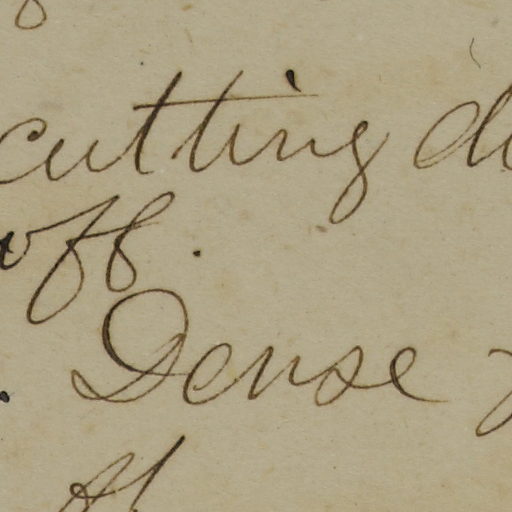 cutting
off.
Dense